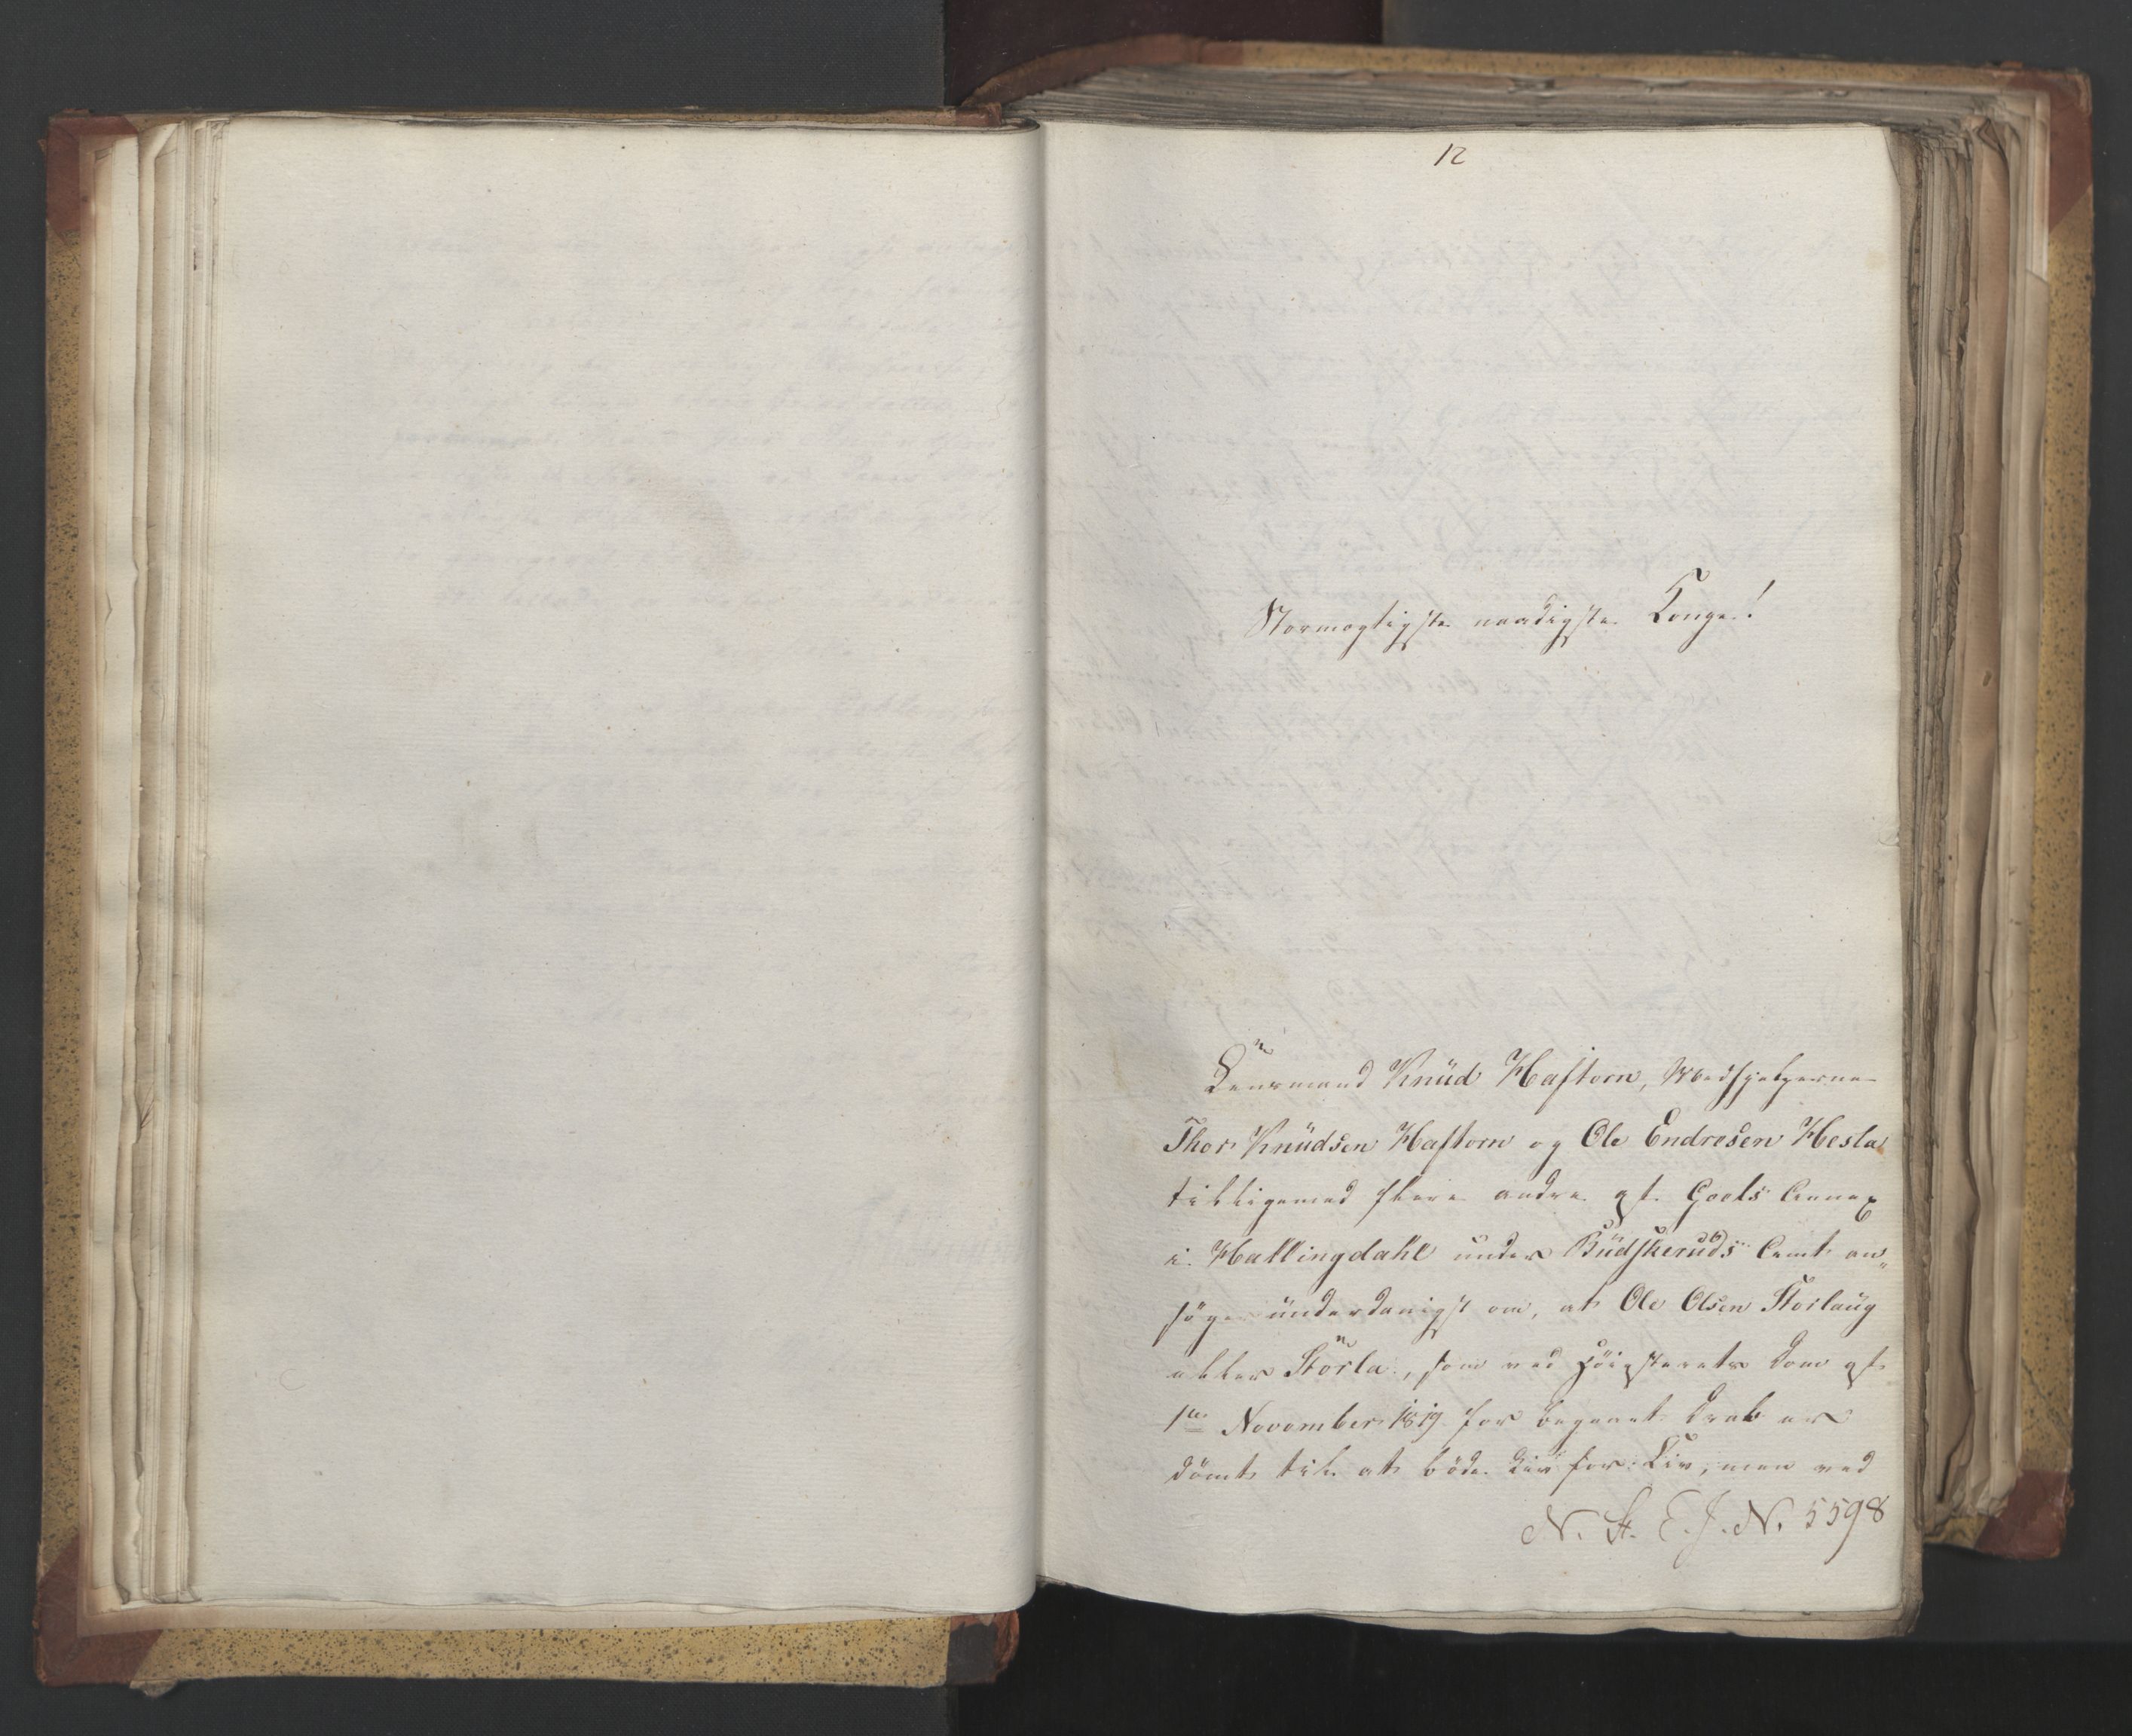 12
Stormægtigste naadigste Konge!
Lensmand Knüd Haftorn, Medhjelperne
Thor Knüdsen Haftorn og Ole Endresen Hesla
tilligemed flere andre af Goels Annex
i Hallingdahl under Büdskerüds Amt an„
söge ünderdanigst om, at Ole Olsen Storlaüg
eller Störla, som ved Höiesterets Dom af
1ste November 1819 for begaaet Drab er
dömt til at böde Liv for Liv, men ved
N. St. E. J. N. 5598